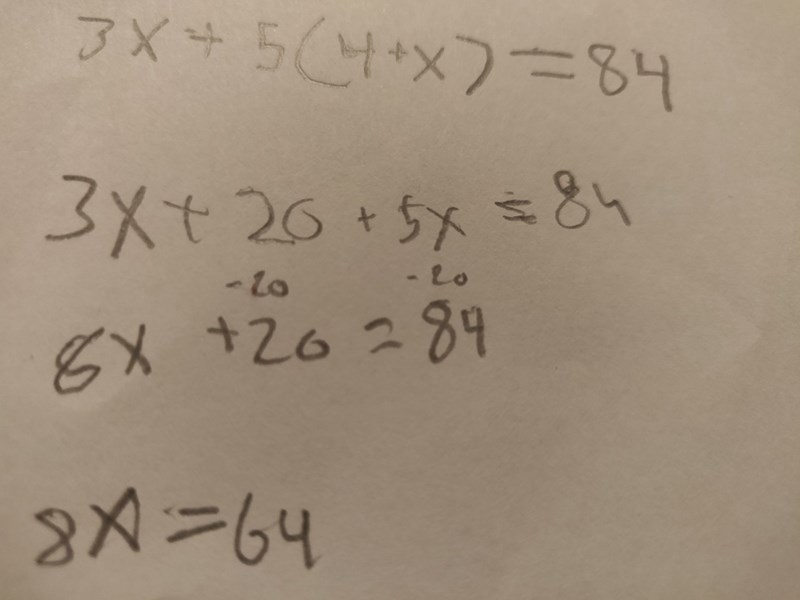 3x + 5(4+x) = 84
3x + 20 + 5x = 84
-20 -20
8x +20 = 84
8x = 64